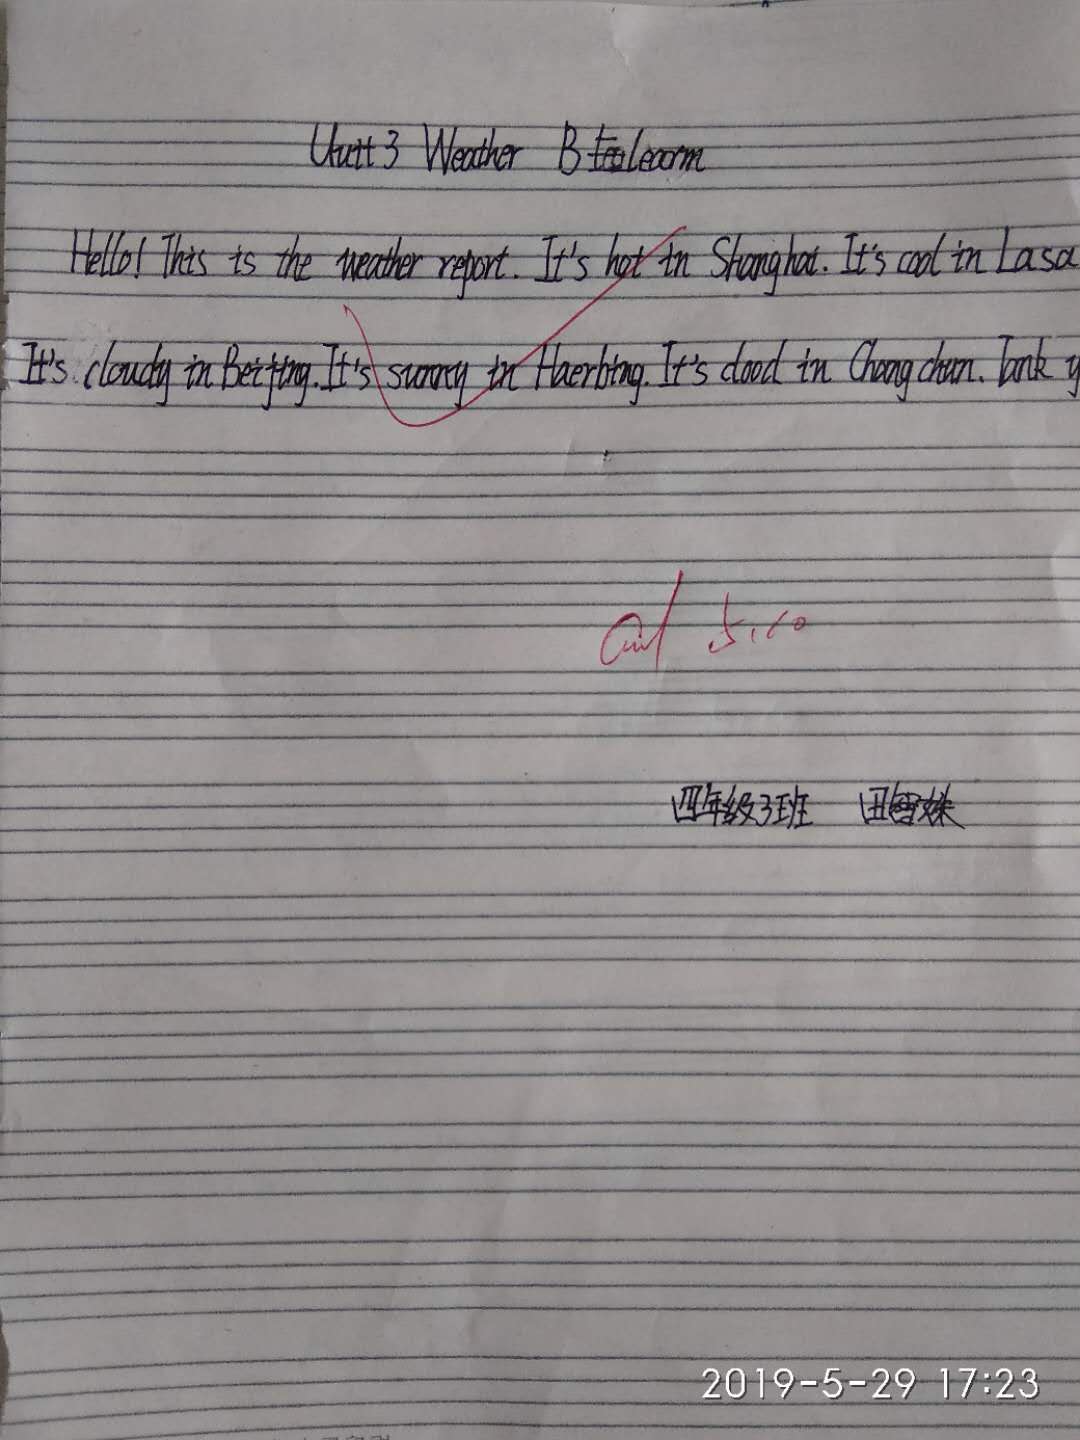 Unit 3 Weather B
Hello! This is the weather report. It's hot in Shanghai. It's cool in Lasa
It's cloudy in Beijing. It's sunny in Haerbing. It's clood in Changchun. Tank y
5.10
四年级3班 田
2019-5-29 17:23